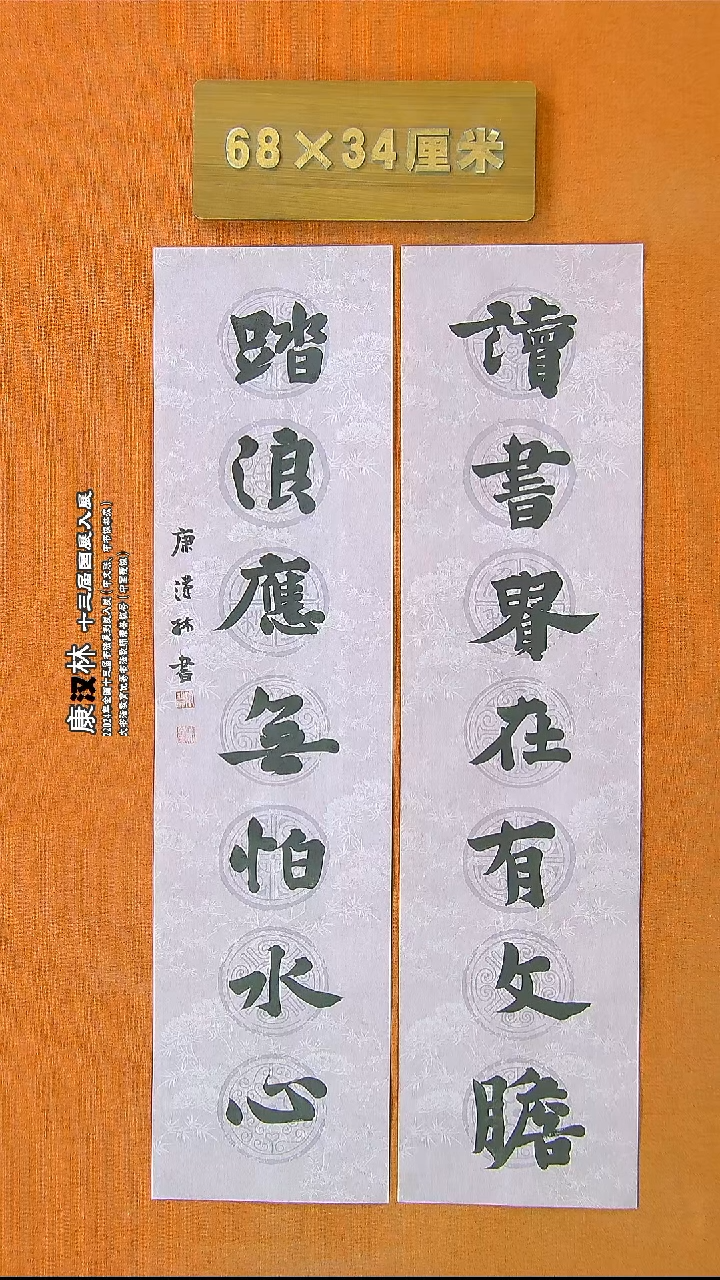 68×34厘米
讀書在有文膽
踏浪應無怕水心
康漢林書
康汉林 十三届国展入展